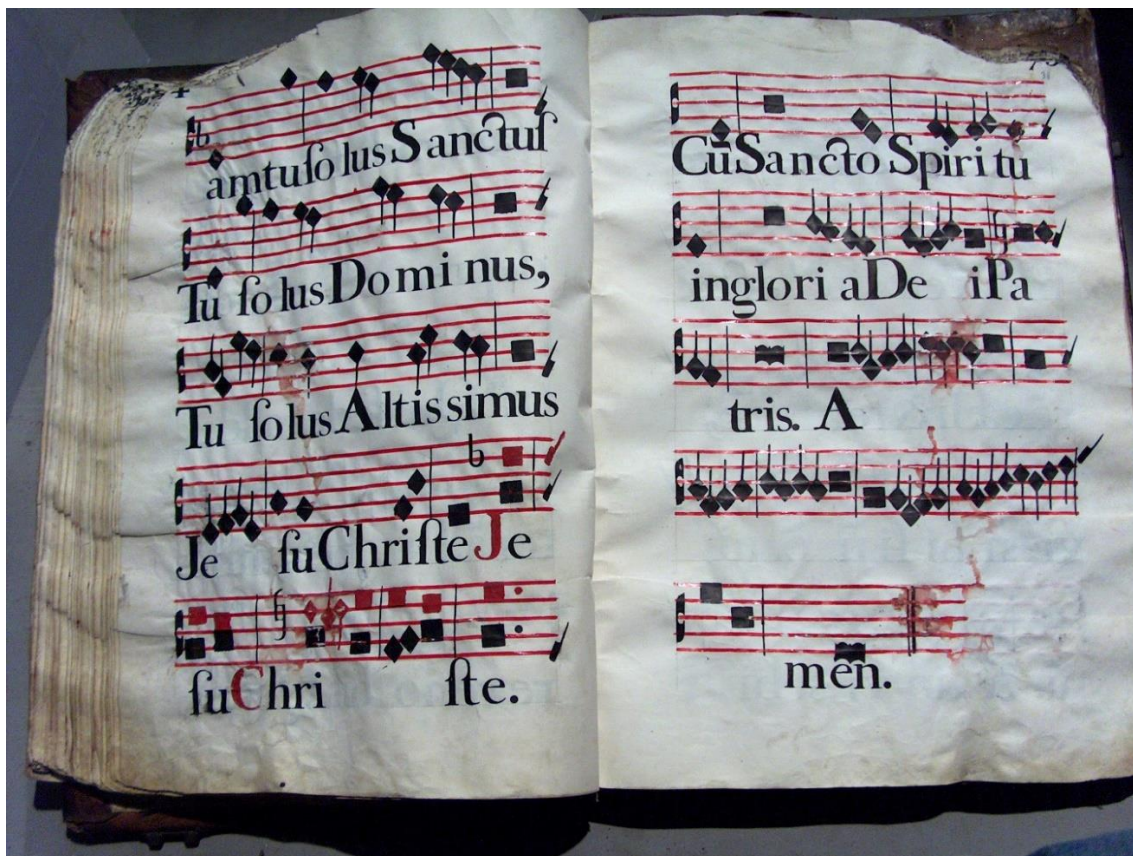 amtuſolus Sanctuſ
Tu ſolus Dominus,
Tu ſolus Altissimus
Je ſu Chriſte Je
ſu Chri ſte.
Cũ Sancto Spiritu
in glori a De i Pa
tris. A
men.